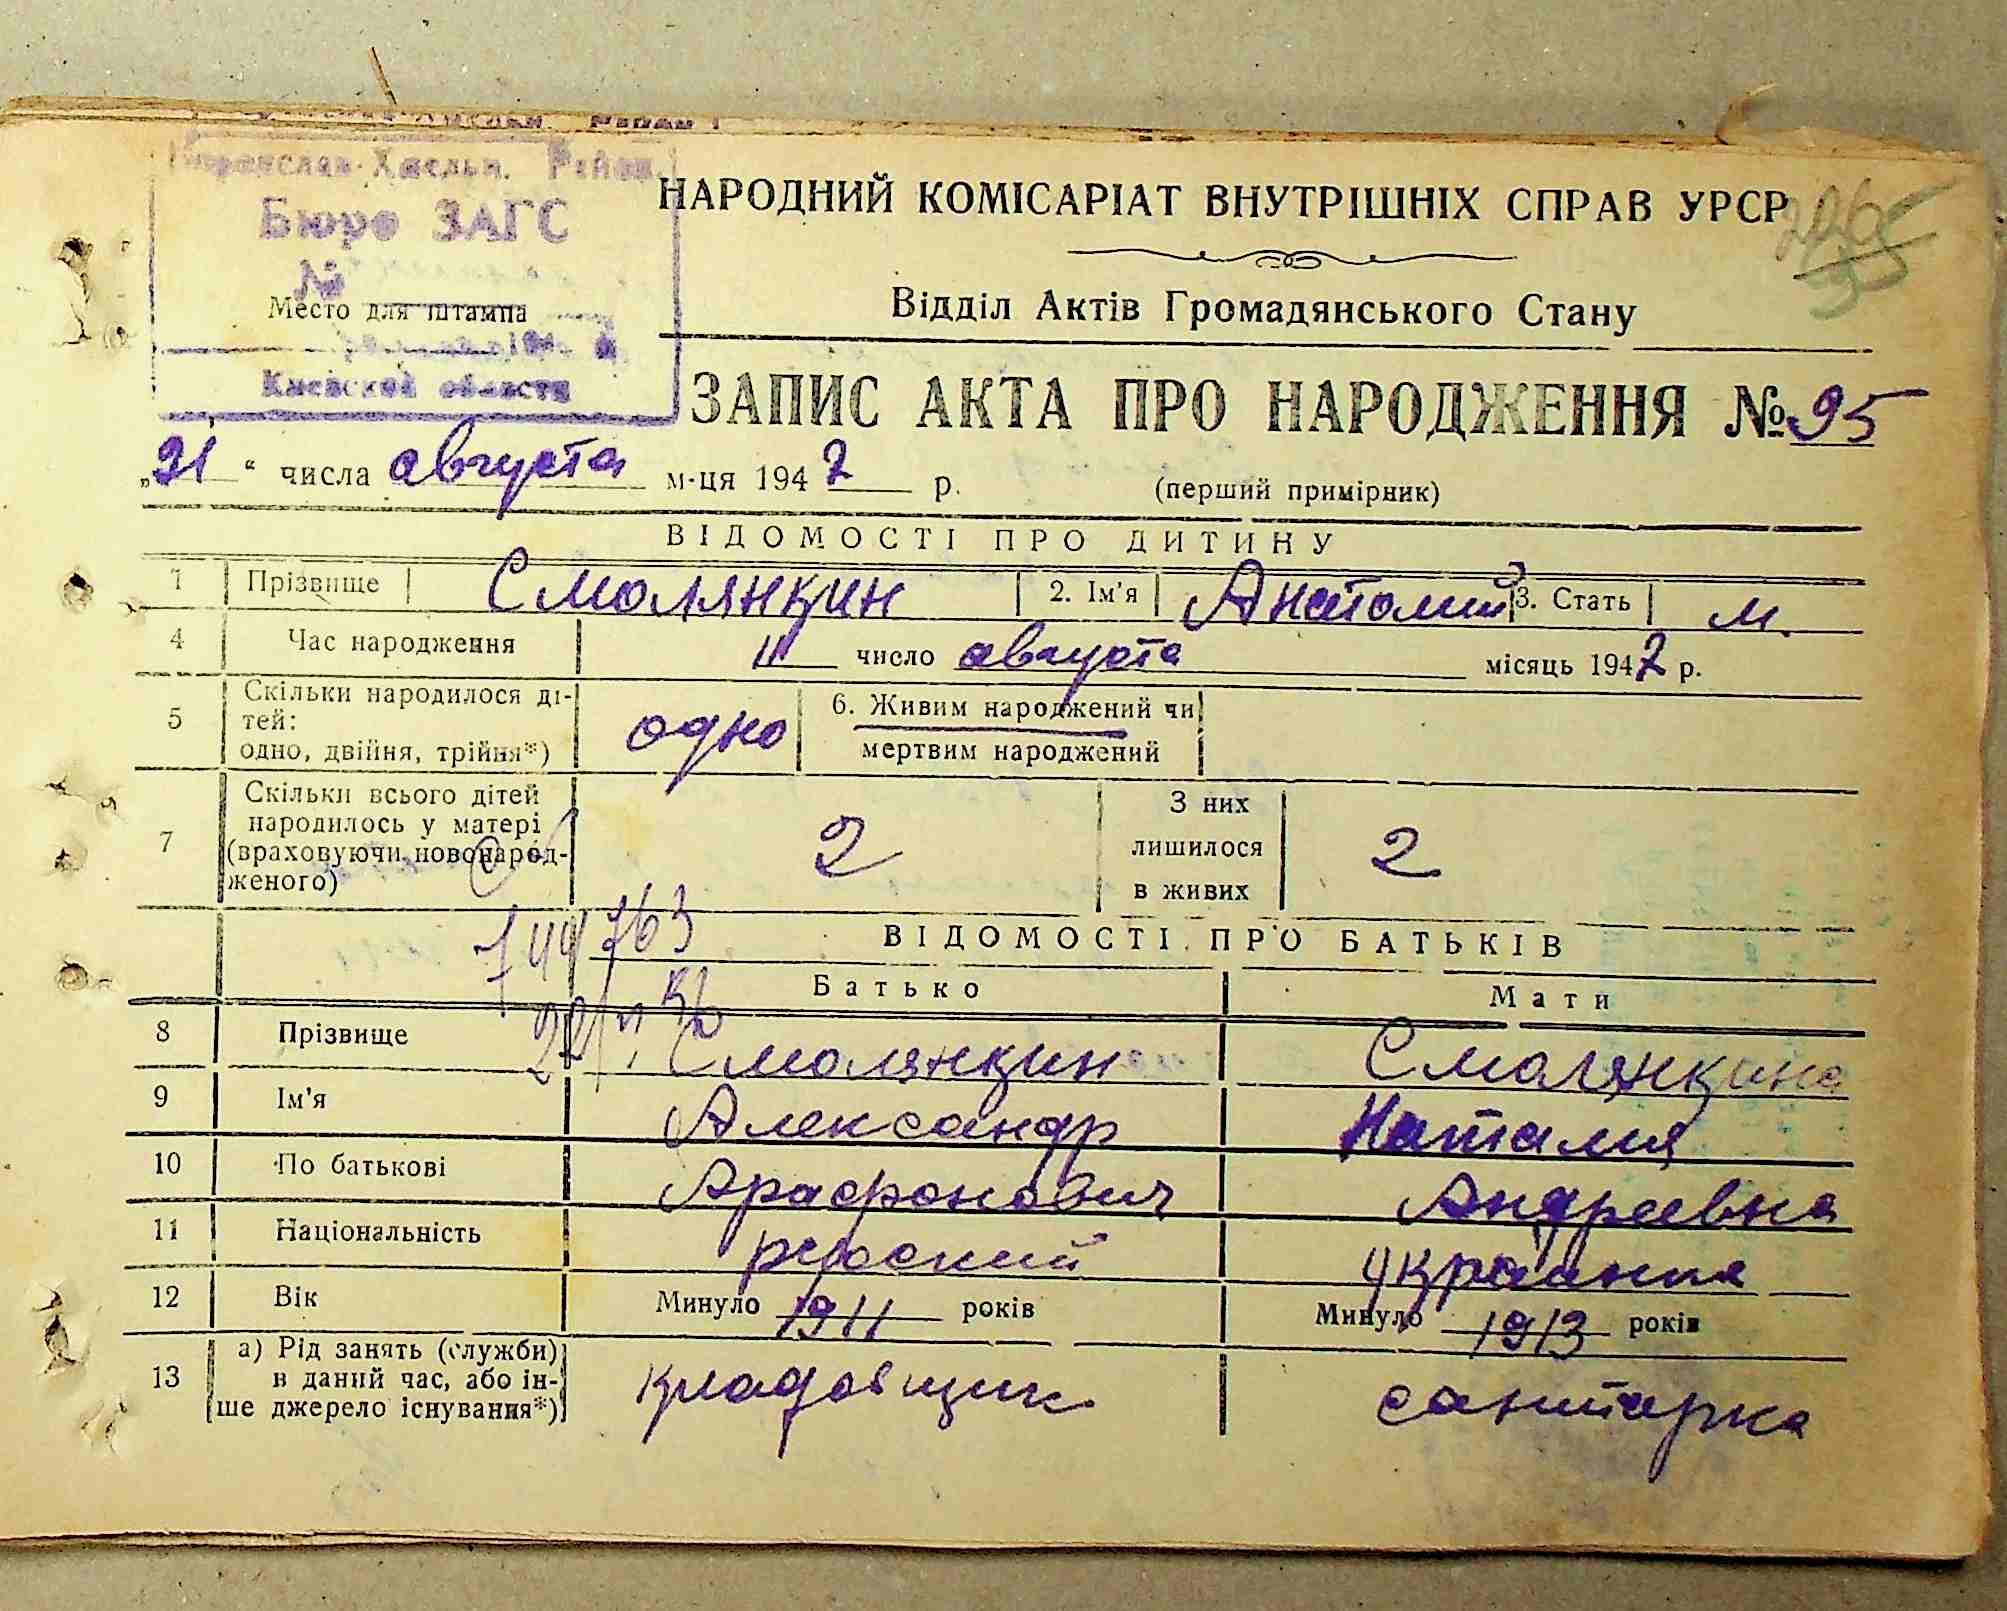 Район
Бюро ЗАГС
№
Место для штампа
Киевской области
НАРОДНИЙ КОМІСАРІАТ ВНУТРІШНІХ СПРАВ УРСР
Відділ Актів Громадянського Стану
ЗАПИС АКТА ПРО НАРОДЖЕННЯ № 95
„21“ числа августа м-ця 1947 р. (перший примірник)
ВІДОМОСТІ ПРО ДИТИНУ
1 Прізвище Смолянкин 2. Ім'я Анатолий 3. Стать м.
4 Час народження 11 число августа місяць 1947 р.
5 Скільки народилося ді-
тей:
одно, двійня, трійня*) одно 6. Живим народжений чи
мертвим народжений
7 Скільки всього дітей
народилось у матері
(враховуючи новонарод-
женого) 2 З них
лишилося
в живих 2
ВІДОМОСТІ ПРО БАТЬКІВ
Батько Мати
8 Прізвище Смолянкин Смолянкина
9 Ім'я Александр Наталия
10 По батькові Андреевна
11 Національність русский
12 Вік Минуло 1911 років Минуло 1913 років
13 а) Рід занять (служби)
в даний час, або ін-
ше джерело існування*) кладовщик санитарка